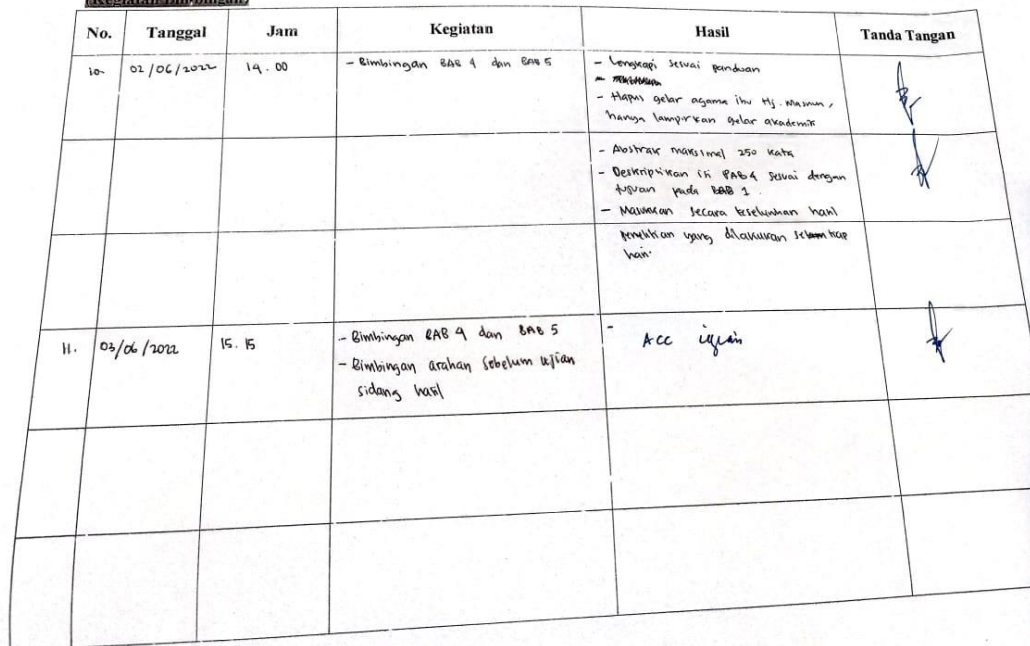 Kegiatan Bimbingan
No. Tanggal Jam Kegiatan Hasil Tanda Tangan
10. 02/06/2022 14.00 - Bimbingan BAB 4 dan BAB 5 - Lengkapi sesuai panduan
- Hapus gelar agama ibu Hj. Masnun,
hanya lampirkan gelar akademik
- Abstrak maksimal 250 kata
- Deskripsikan isi BAB 4 sesuai dengan
tujuan pada BAB 1.
- Masukkan secara keseluruhan hasil
penelitian yang dilakukan setiap
hari.
11. 03/06/2022 15.15 - Bimbingan BAB 4 dan BAB 5 - ACC ujian
- Bimbingan arahan sebelum ujian
sidang hasil